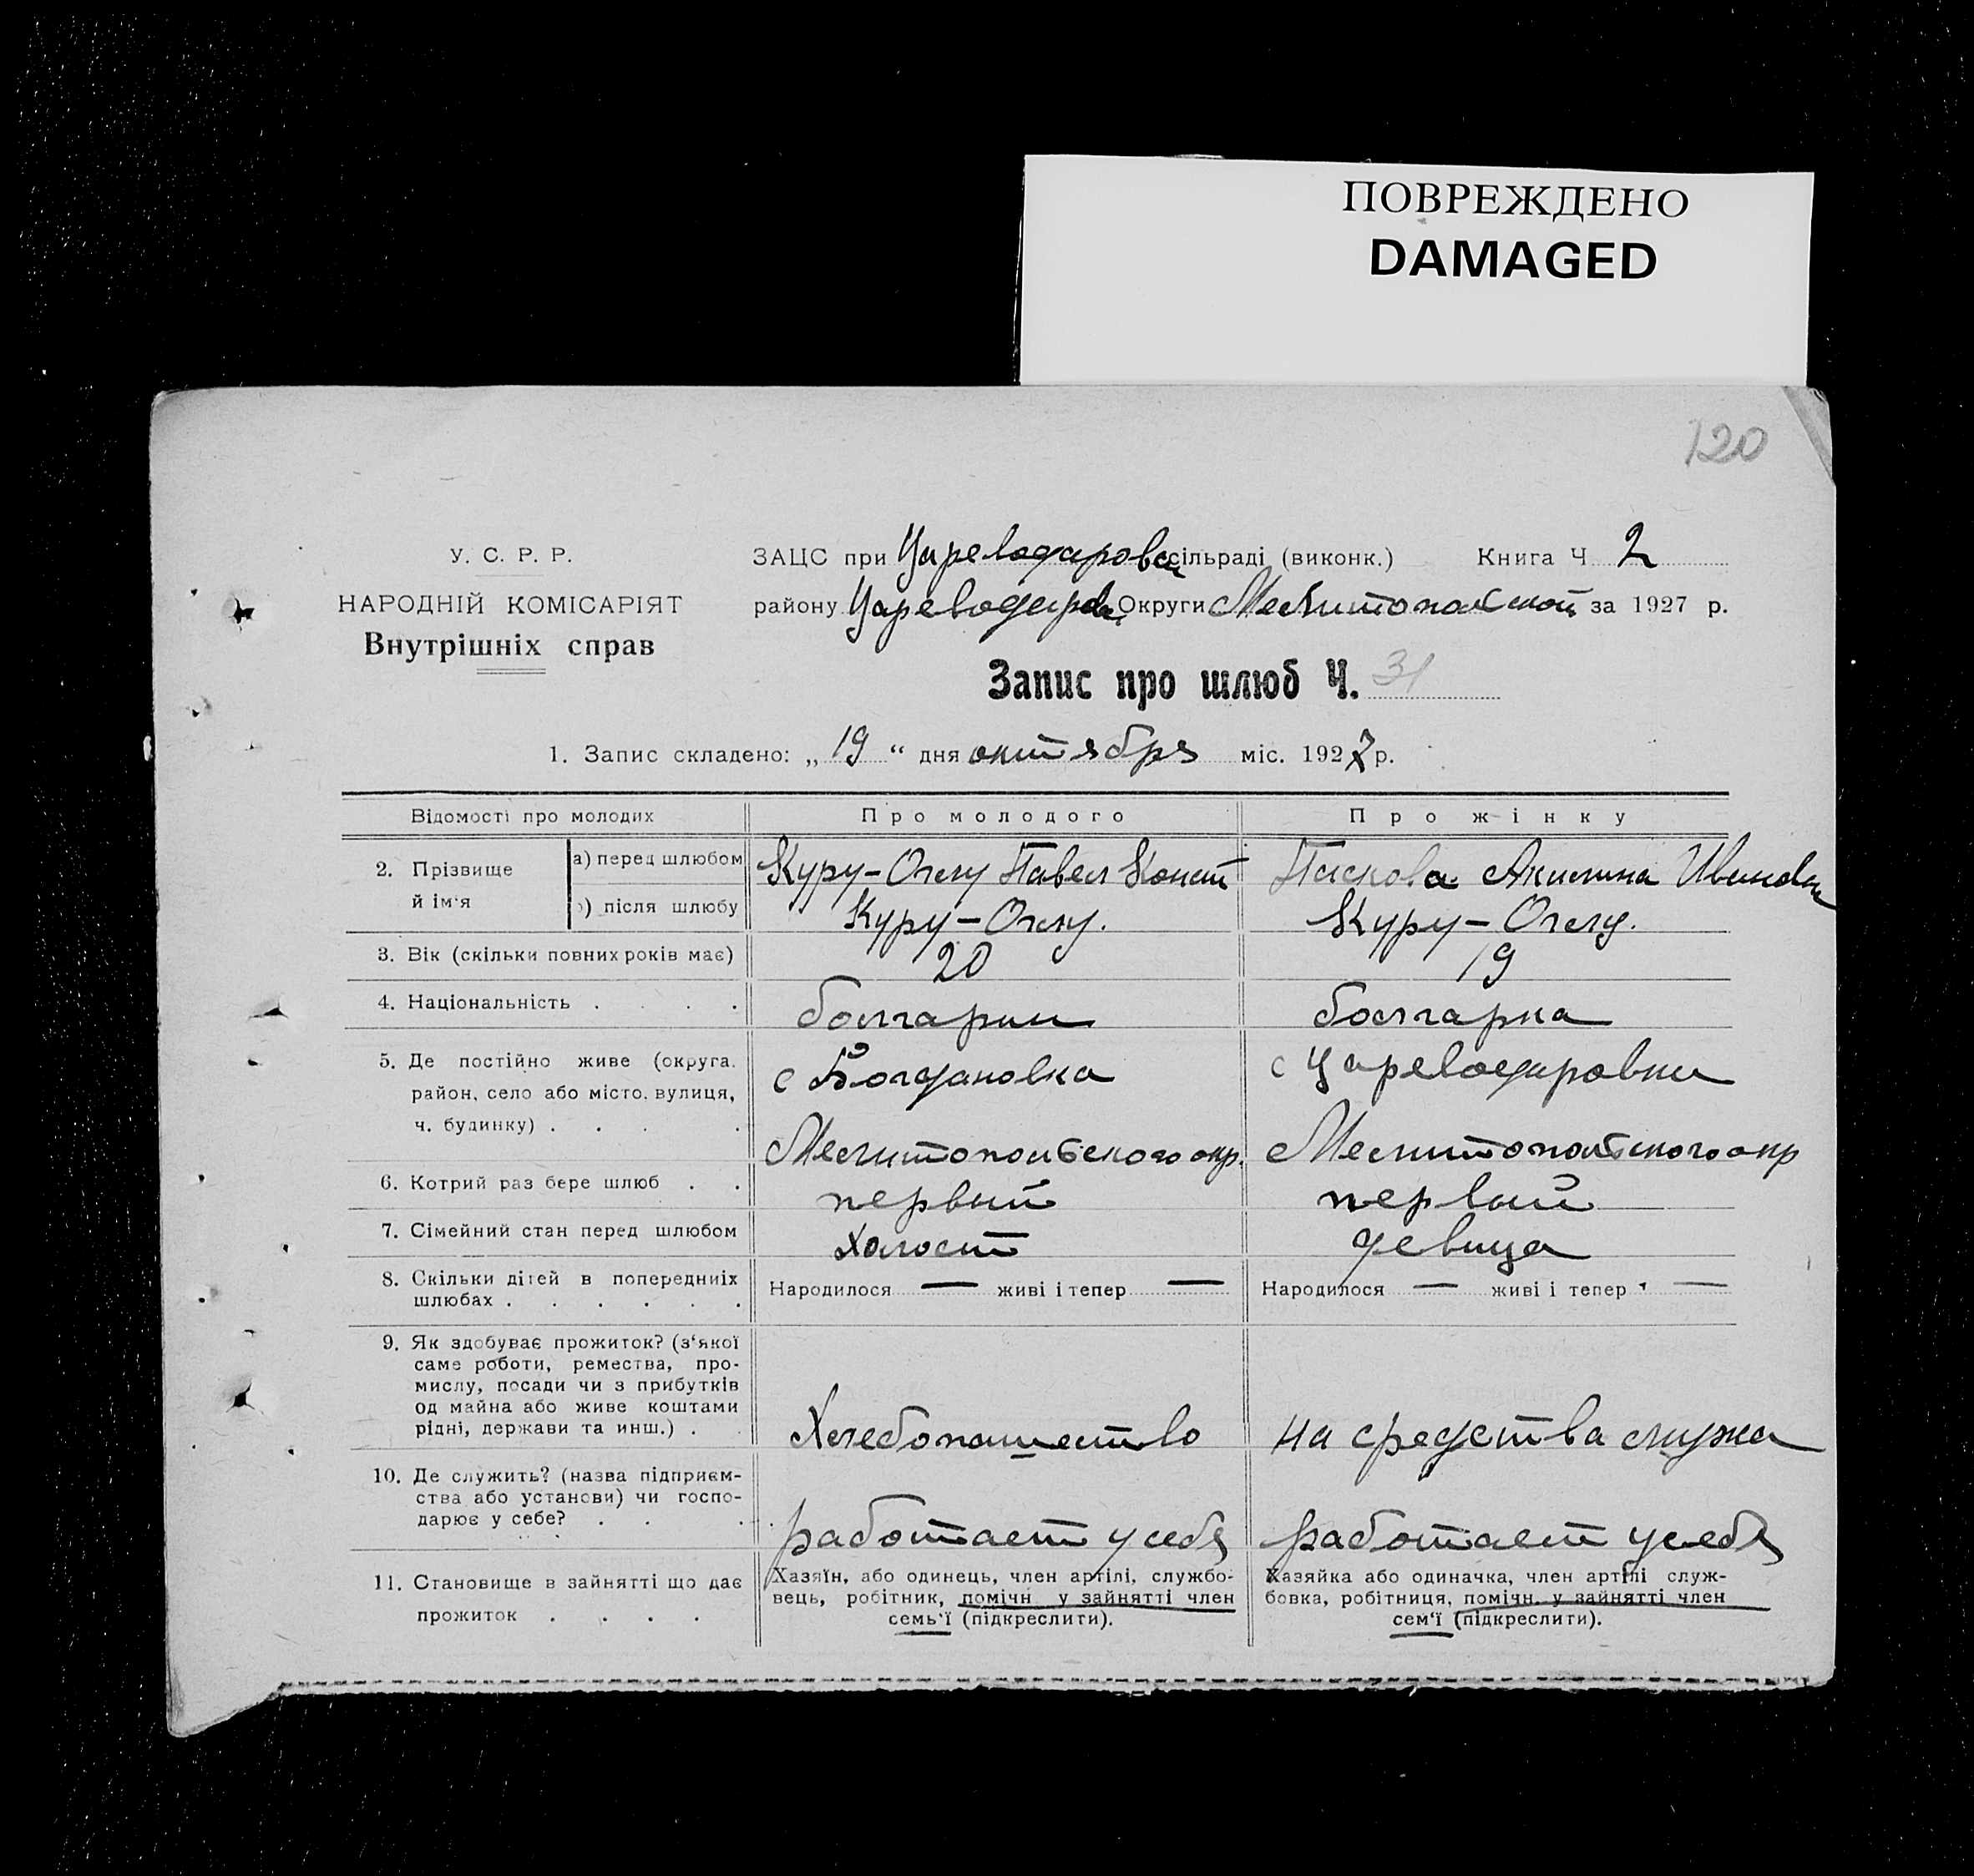 ПОВРЕЖДЕНО
DAMAGED
120
У. С. Р. Р.
НАРОДНІЙ КОМІСАРІЯТ
Внутрішніх справ
ЗАЦС при Цареводаровск сільраді (виконк.) Книга Ч 2
району Цареводаров Округи Мелитопольской за 1927 р.
Запис про шлюб Ч. 31
1. Запис складено: „ 19 “ дня октября міс. 1927 р.
Відомості про молодих
Про молодого
Про жінку
2. Прізвище й ім'я
а) перед шлюбом
Куру-Оглу Павел Конст
Паскова Акилина Ивановн
б) після шлюбу
Куру-Оглу.
Куру-Оглу.
3. Вік (скільки повних років має)
20
19
4. Національність . . . .
болгарин
болгарка
5. Де постійно живе (округа,
район, село або місто, вулиця,
ч. будинку) . . . .
с Богдановка
Мелитопольского окр.
с Цареводаровки
Мелитопольского окр
6. Котрий раз бере шлюб . .
первый
первый
7. Сімейний стан перед шлюбом
Холост
девица
8. Скільки дітей в попередниіх
шлюбах . . . . . .
Народилося — живі і тепер —
Народилося — живі і тепер —
9. Як здобуває прожиток? (з'якої
саме роботи, ремества, про-
мислу, посади чи з прибутків
од майна або живе коштами
рідні, держави та инш.) .
Хлебопашество
на средства мужа
10. Де служить? (назва підприєм-
ства або установи) чи госпо-
дарює у себе? . . .
работает у себя
работает у себя
11. Становище в зайнятті що дає
прожиток . . . .
Хазяїн, або одинець, член артілі, службо-
вець, робітник, помічн у зайнятті член
семь'ї (підкреслити).
Хазяйка або одиначка, член артілі служ-
бовка, робітниця, помічн. у зайнятті член
сем'ї (підкреслити).